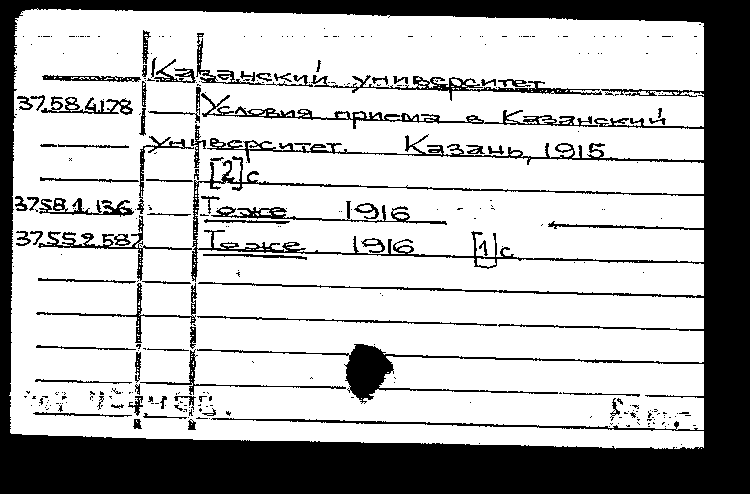 Казанский университет
37.58.4.178 Условия приема в Казанский
университет. Казань, 1915
[2] с.
37.58.1.136 Тоже 1916
37.55.2.587 Тоже 1916 [1] с.